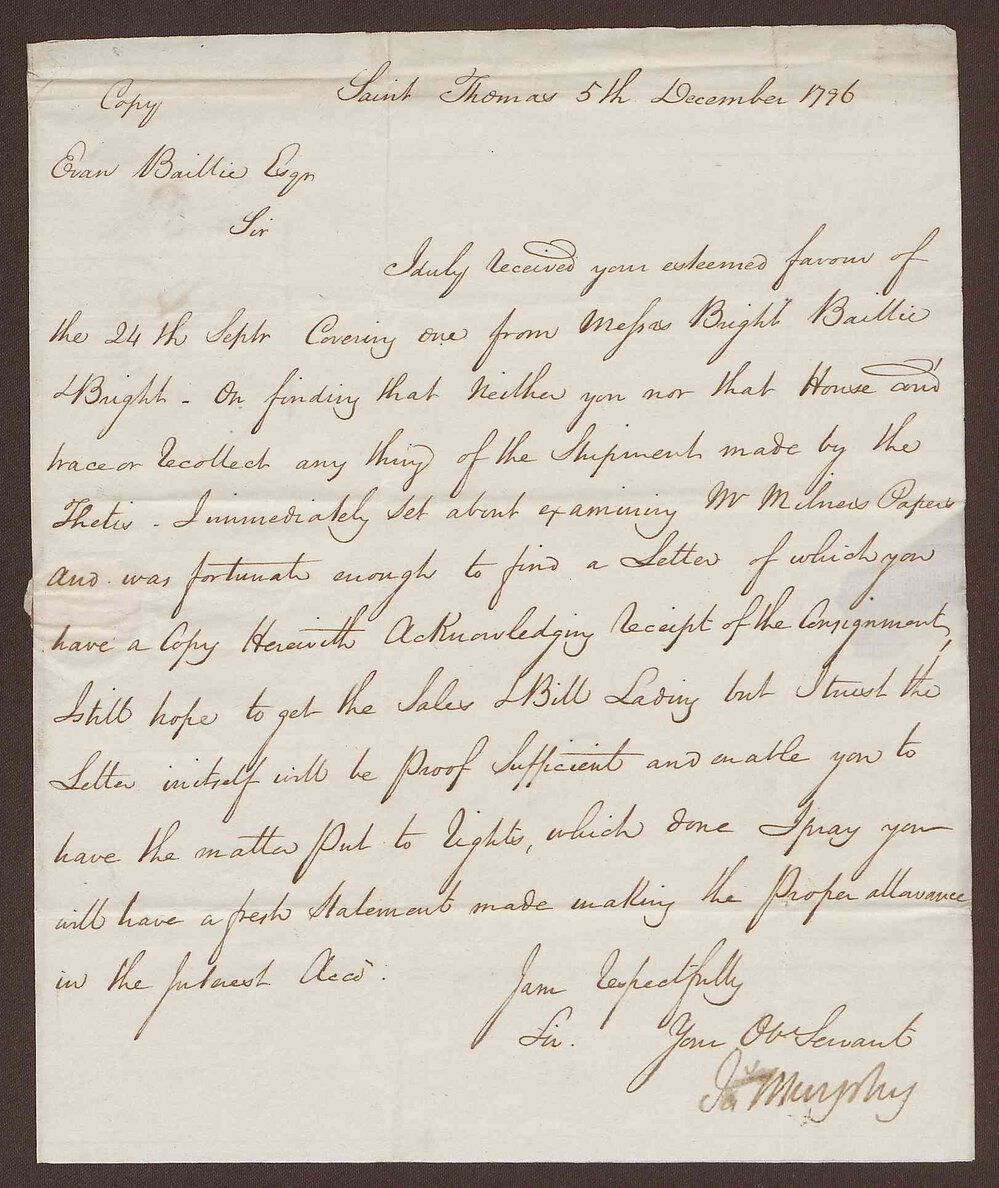 Copy Saint Thomas 5th December 1796
Evan Baillie Esqr
Sir
I duly received your esteemed favour of
the 24th Septr Covering one from Messrs Bright Baillie
& Bright - On finding that Neither you nor that House could
trace or recollect any thing of the Shipment made by the
Thetis - I immediately set about examining Mr Milners Papers
and was fortunate enough to find a Letter of which you
have a Copy Herewith Acknowledging receipt of the Consignment,
I still hope to get the Sales & Bill Lading but I trust the
Letter initself will be Proof Sufficient and enable you to
have the matter Put to rights, which done I pray you
will have a fresh Statement made making the Proper allowance
in the Interest Acct:
I am respectfully
Sir. Your Obt Servant
Murphy